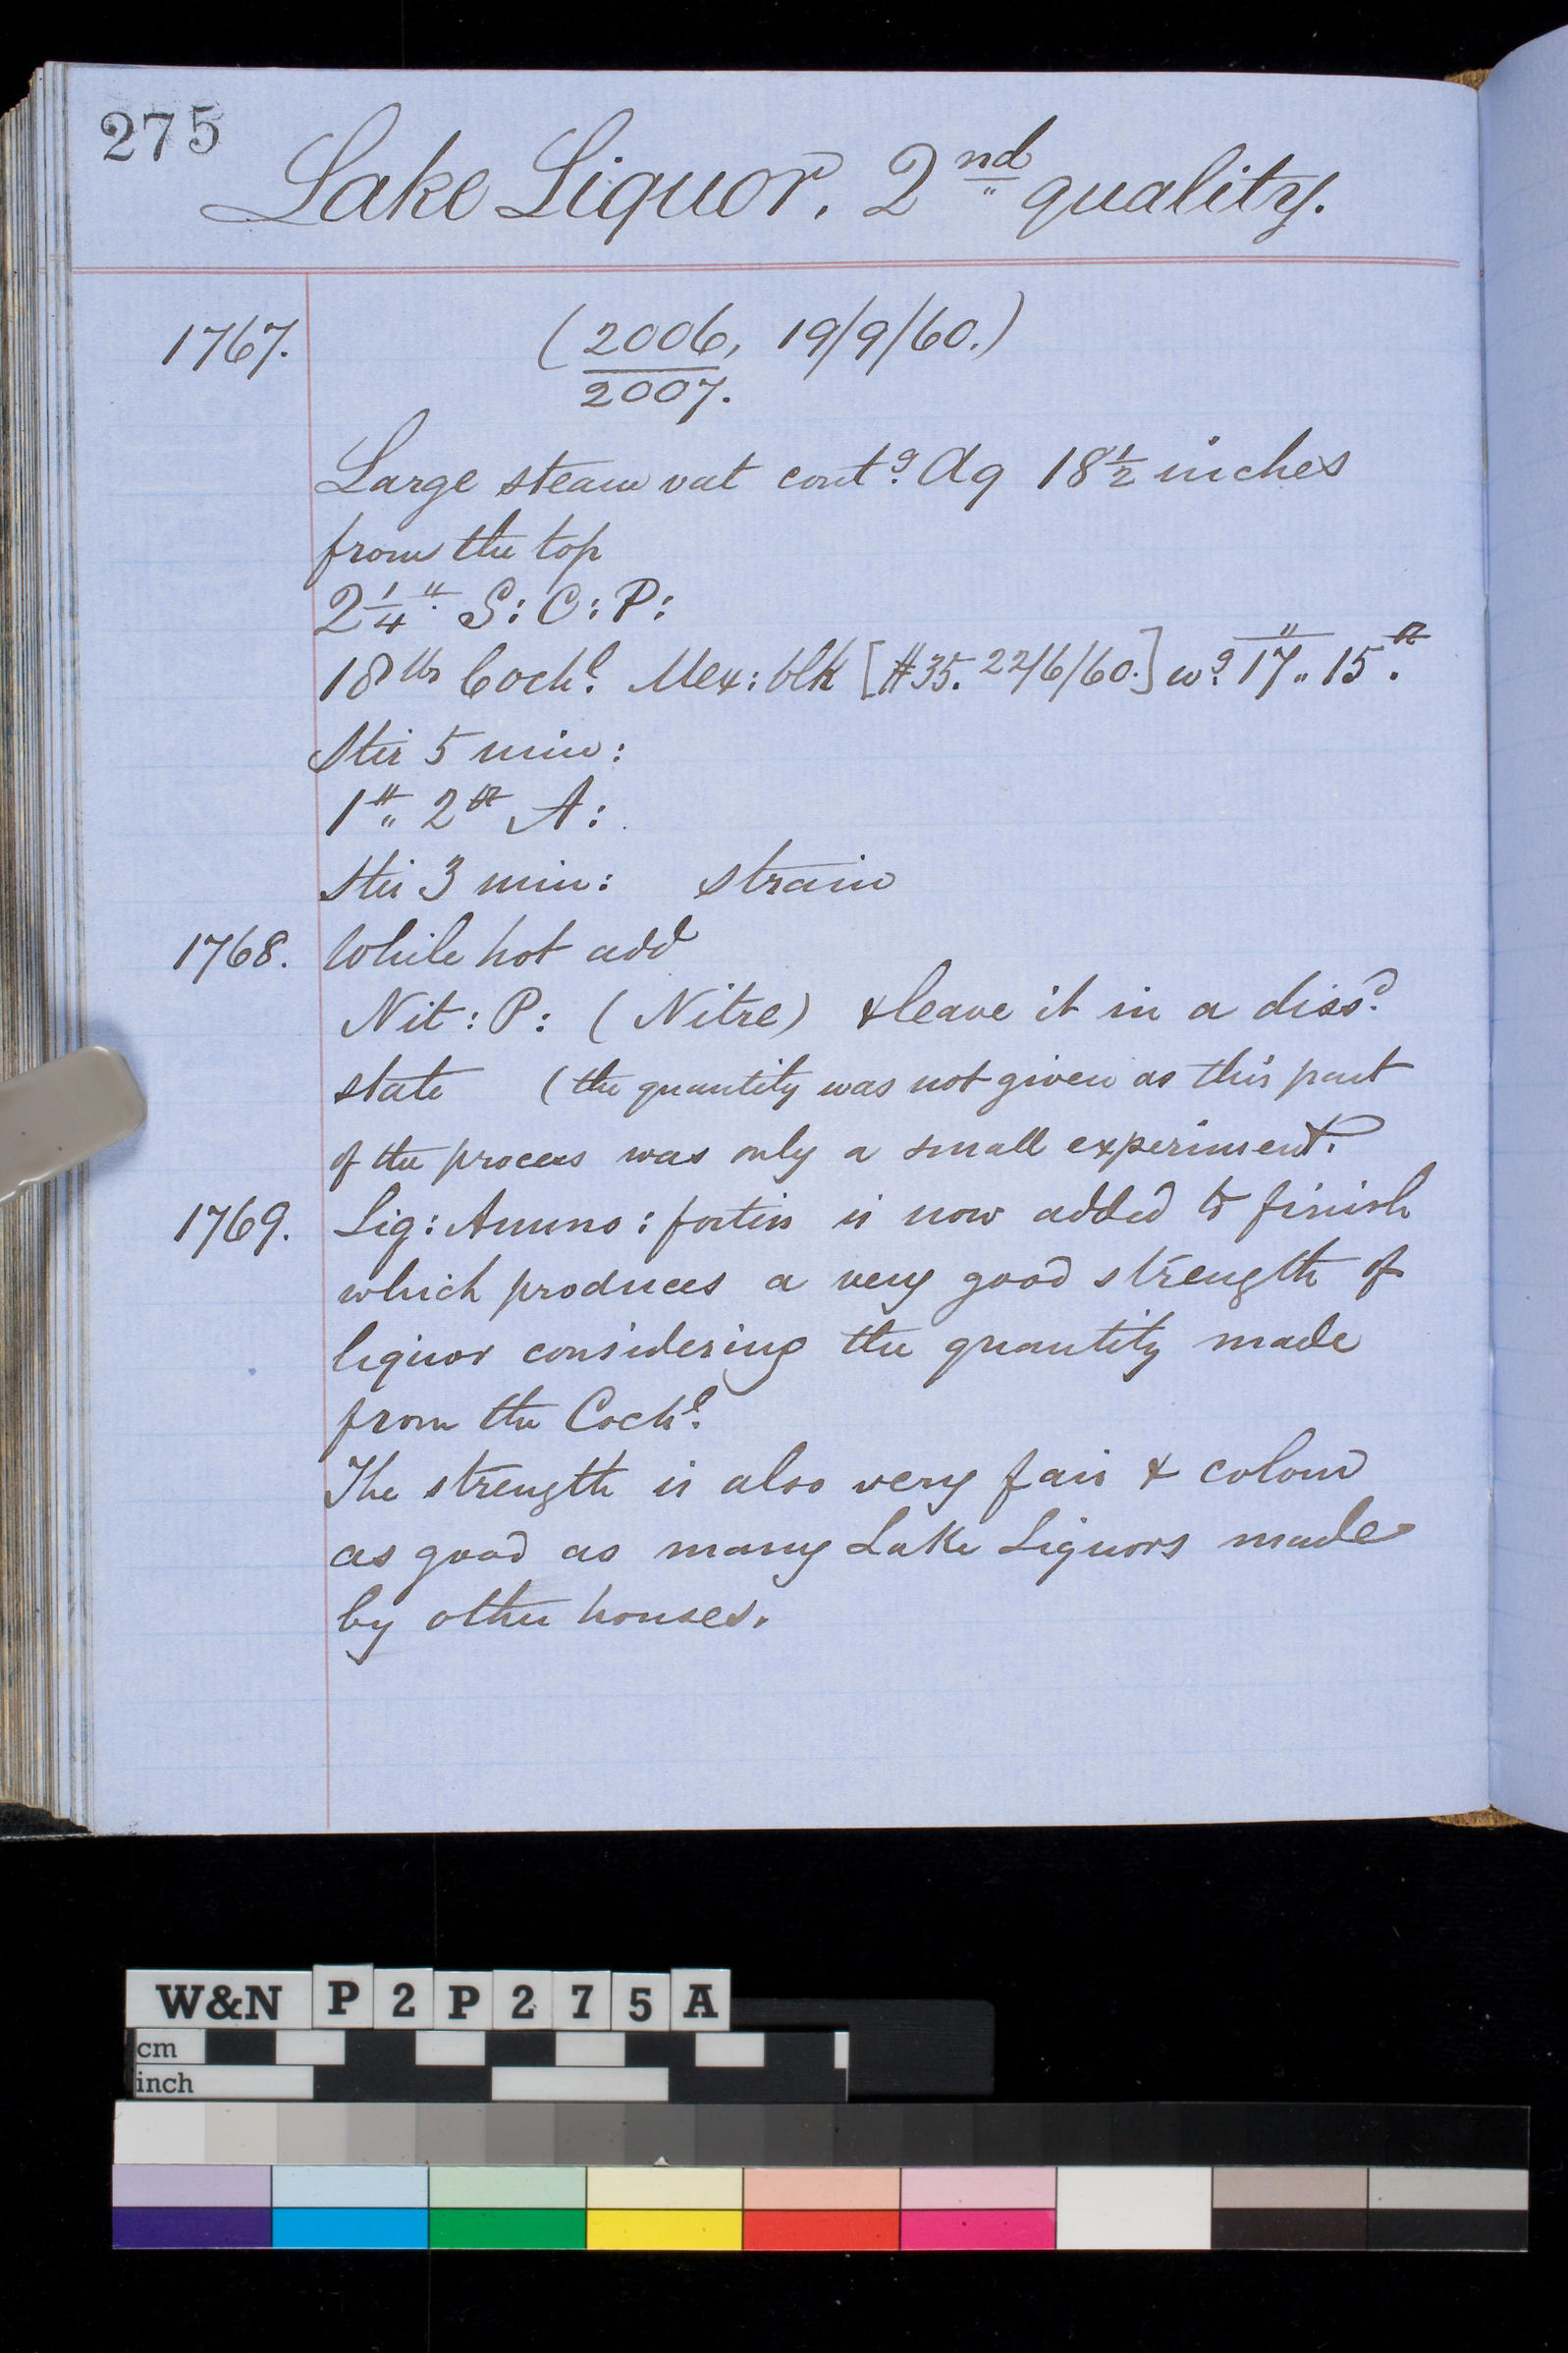 275
Lake Liquor. 2nd quality.
1767. (2006, 19/9/60.)
2007.
Large steam vat contg. Aq 18½ inches
from the top
2¼ " S: C: P:
18 lbs Cochl. Mex: blk [#35. 22/6/60.] wg. 17 " 15 oz.
Stir 5 min:
1 " 2 oz A:
Stir 3 min: strain
1768. While hot add
Nit: P: (Nitre) & leave it in a dissd.
state (the quantity was not given as this part
of the process was only a small experiment.
1769. Liq: Ammo: fortis is now added to finish
which produces a very good strength of
liquor considering the quantity made
from the Cochl.
The strength is also very fair & colour
as good as many Lake Liquors made
by other houses.
W&N P2P275A
cm
inch